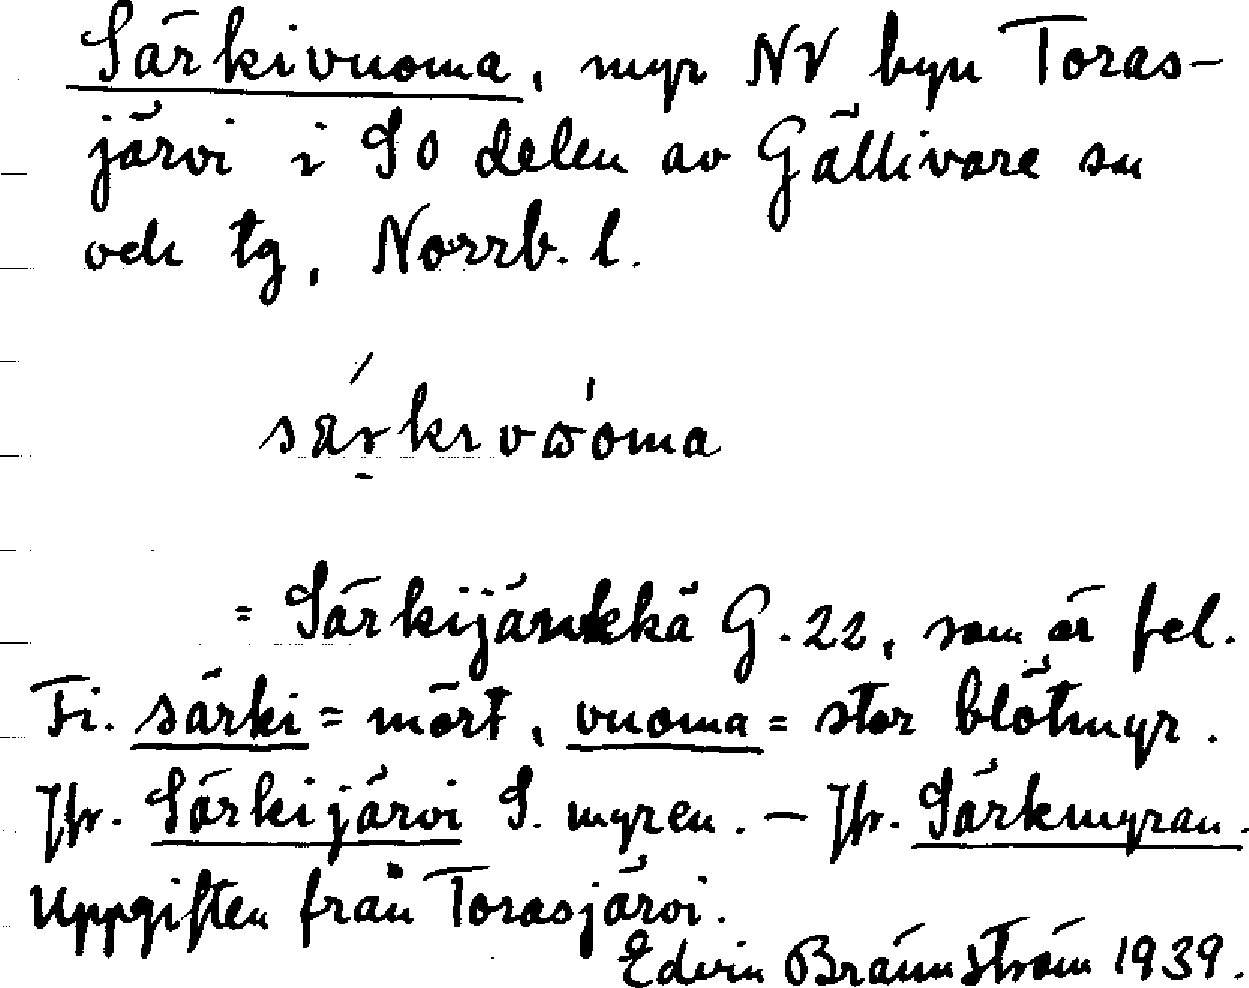 Särkivuoma, myr NV byn Toras-
järvi i SO delen av Gällivare sn
och tg, Norrb. l.
särkivɷoma
= Särkijänkkä G.22, som är fel.
Fi. särki = mört, vuoma = stor blötmyr.
Jfr. Särkijärvi S. myren. – Jfr. Särkmyran.
Uppgiften från Torasjärvi.
Edvin Brännström 1939.